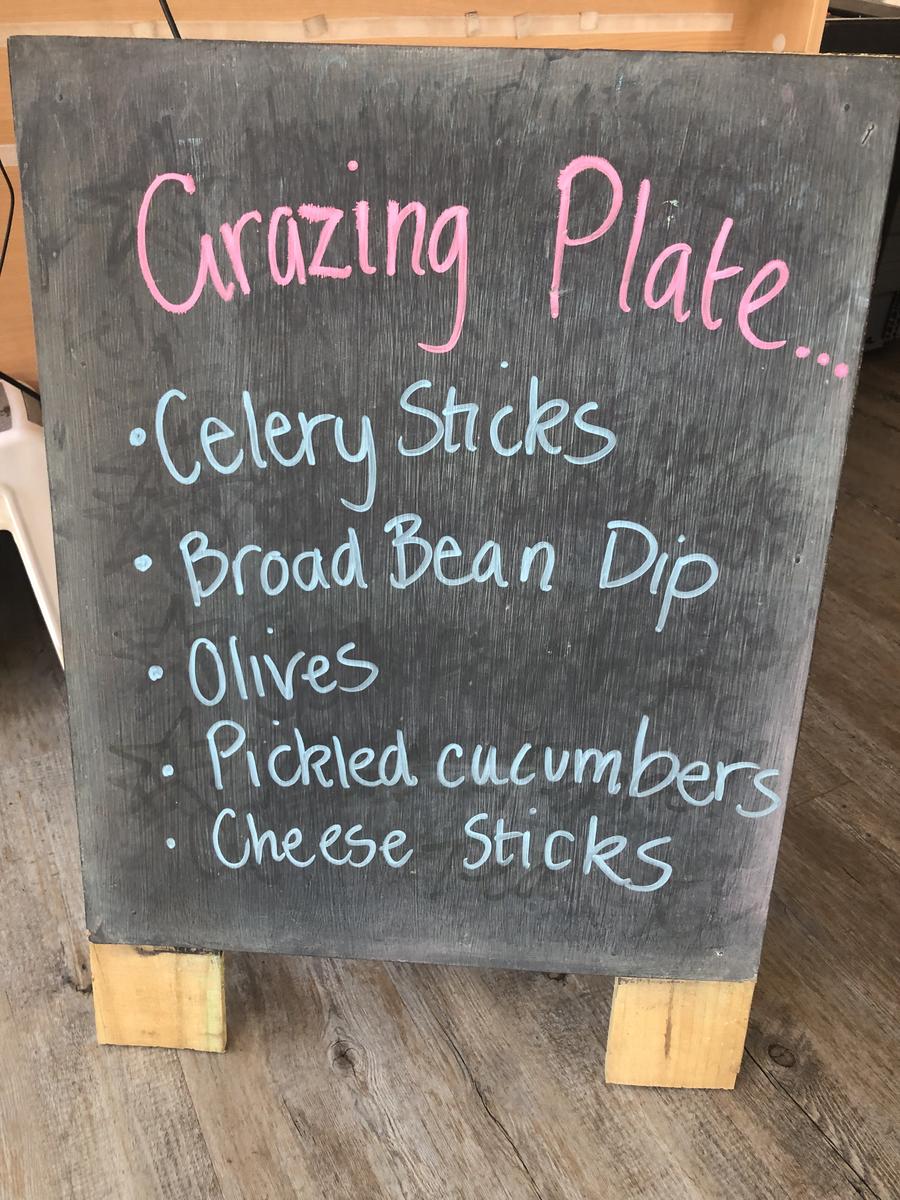 Grazing Plate...
• Celery Sticks
• Broad Bean Dip
• Olives
• Pickled cucumbers
• Cheese Sticks